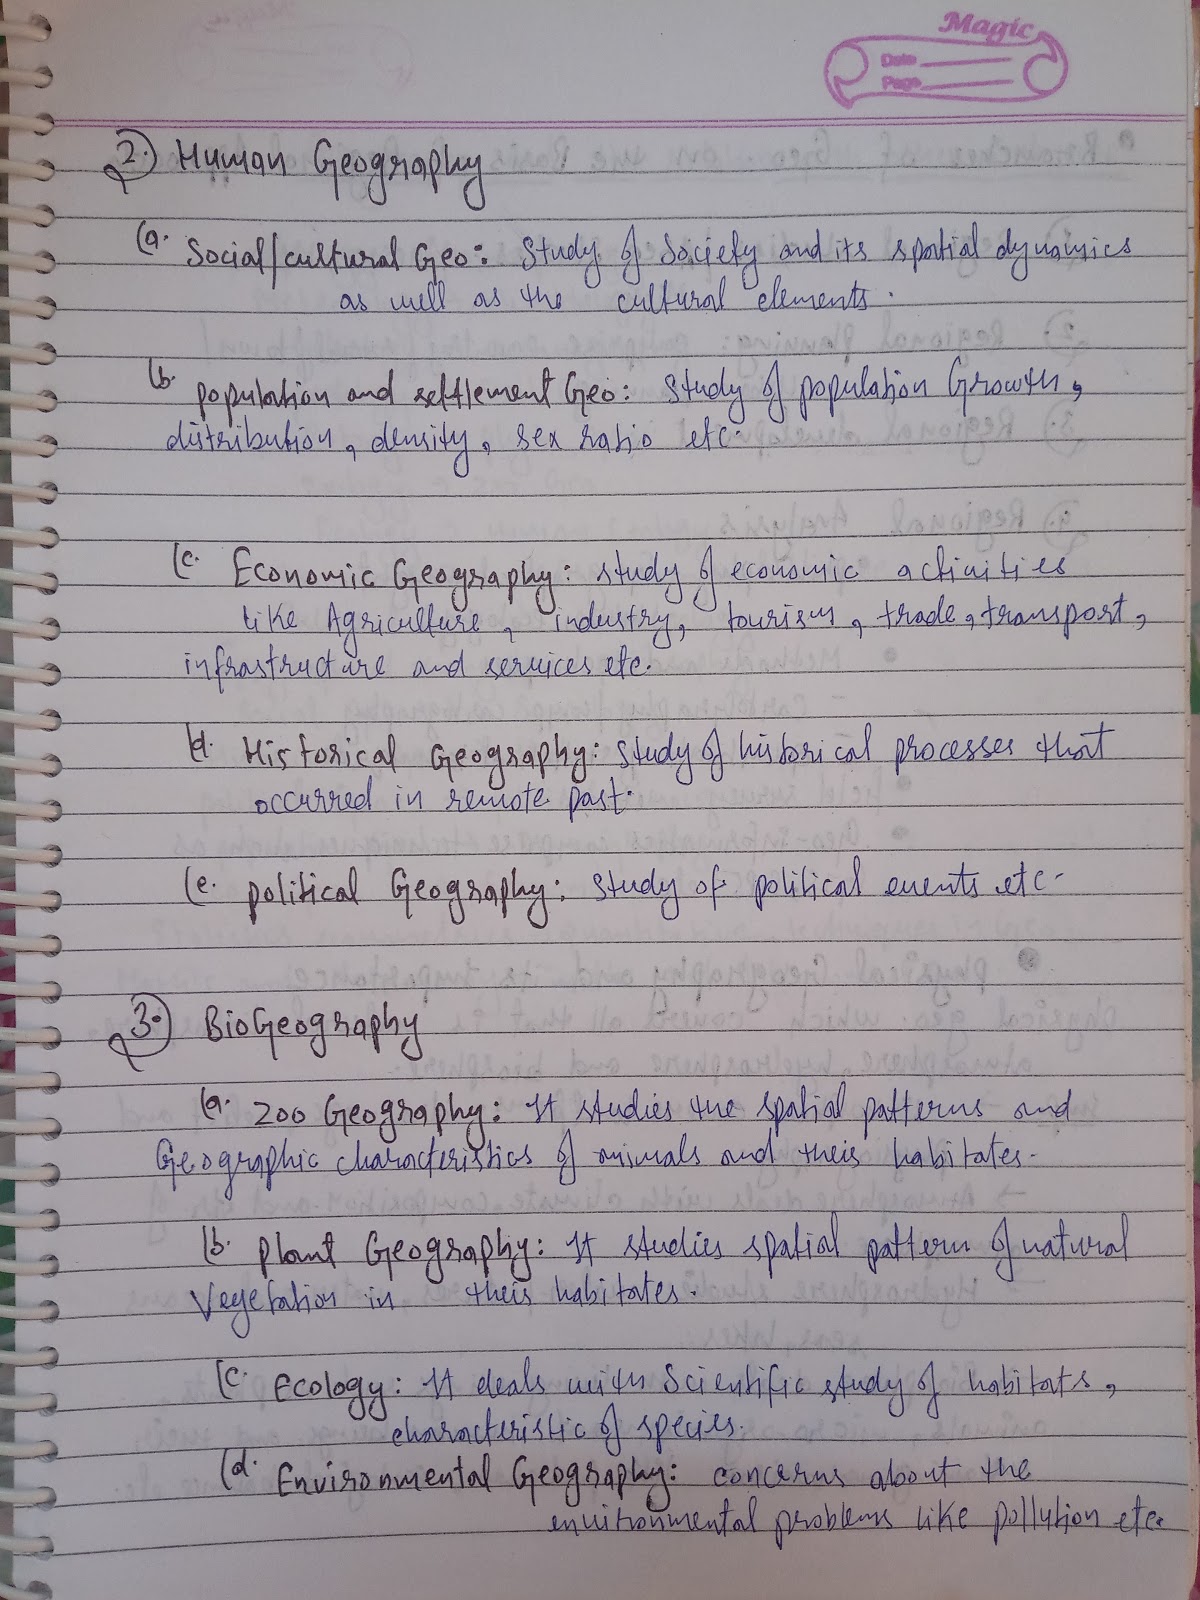 Magic
Date
Page
2. Human Geography
(a. Social/cultural Geo: Study of Society and its spatial dynamics
as well as the cultural elements.
(b. population and settlement Geo: Study of population Growth,
distribution, density, sex ratio etc.
(c. Economic Geography: study of economic activities
like Agriculture, industry, tourism, trade, transport,
infrastructure and services etc.
(d. Historical Geography: Study of historical processes that
occurred in remote past.
(e. political Geography: Study of political events etc.
3. BioGeography
(a. Zoo Geography: It studies the spatial patterns and
Geographic characteristics of animals and their habitates.
(b. Plant Geography: It studies spatial pattern of natural
Vegetation in their habitates.
(c. Ecology: It deals with Scientific study of habitats,
characteristic of species.
(d. Environmental Geography: concerns about the
environmental problems like pollution etc.